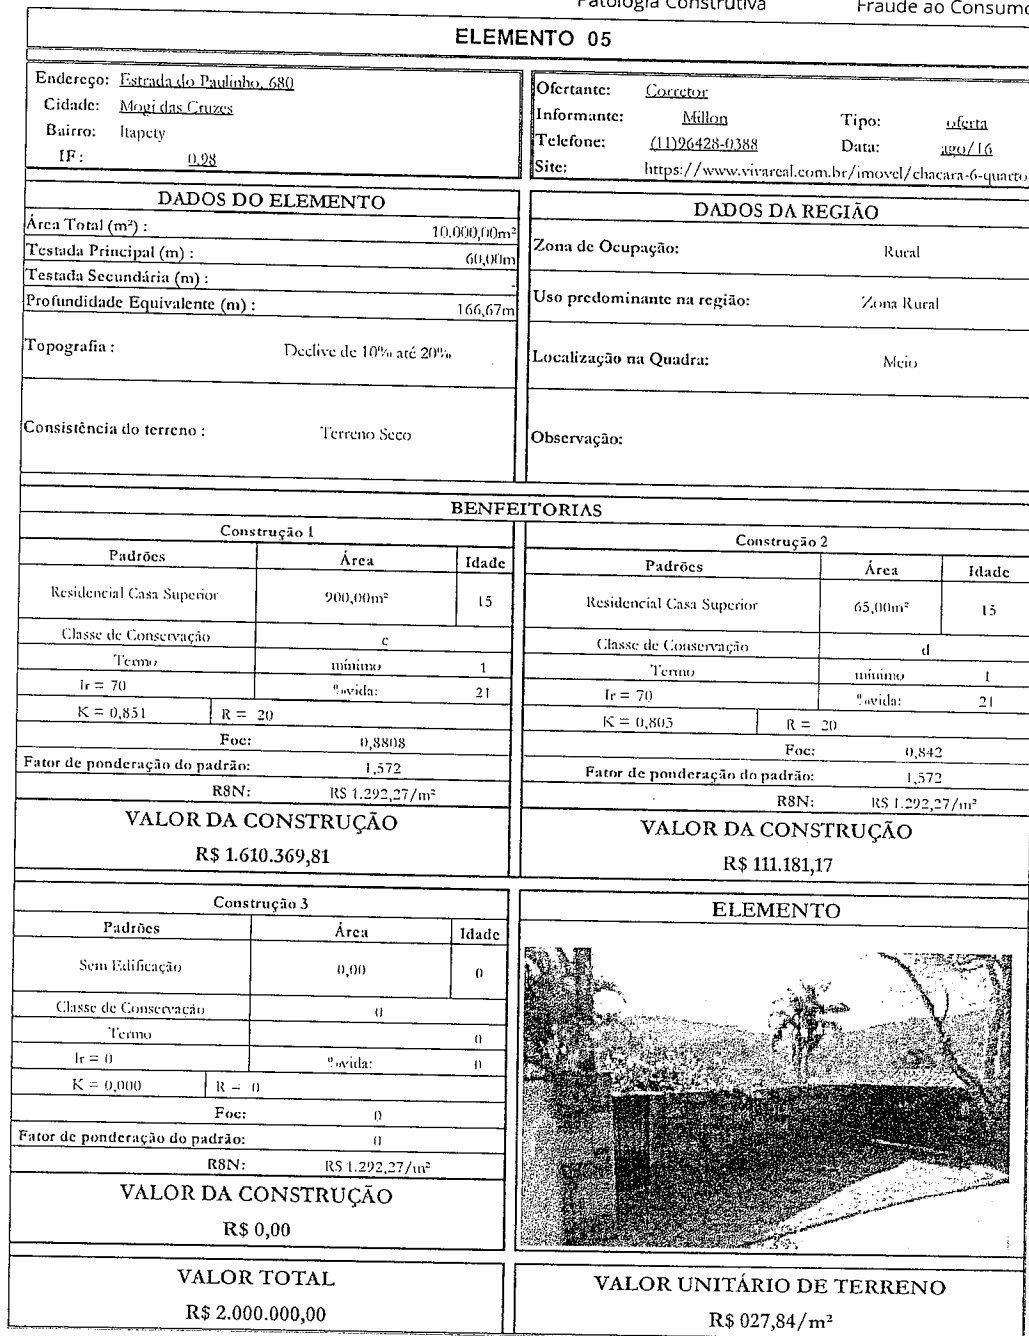 Patologia Construtiva Fraude ao Consumo
ELEMENTO 05
Endereço: Estrada do Paulinho, 680
Cidade: Mogi das Cruzes
Bairro: Itapety
IF: 0,98
Ofertante: Corretor
Informante: Millon Tipo: oferta
Telefone: (11)96428-0388 Data: ago/16
Site: https://www.vivareal.com.br/imovel/chacara-6-quarto
DADOS DO ELEMENTO
Área Total (m²) : 10.000,00m²
Testada Principal (m) : 60,00m
Testada Secundária (m) : -
Profundidade Equivalente (m) : 166,67m
Topografia : Declive de 10% até 20%
Consistência do terreno : Terreno Seco
DADOS DA REGIÃO
Zona de Ocupação: Rural
Uso predominante na região: Zona Rural
Localização na Quadra: Meio
Observação:
BENFEITORIAS
Construção 1
Padrões Área Idade
Residencial Casa Superior 900,00m² 15
Classe de Conservação c
Termo mínimo 1
Ir = 70 %vida: 21
K = 0,851 R = 20
Foc: 0,8808
Fator de ponderação do padrão: 1,572
R8N: R$ 1.292,27/m²
VALOR DA CONSTRUÇÃO
R$ 1.610.369,81
Construção 2
Padrões Área Idade
Residencial Casa Superior 65,00m² 15
Classe de Conservação d
Termo mínimo 1
Ir = 70 %vida: 21
K = 0,803 R = 20
Foc: 0,842
Fator de ponderação do padrão: 1,572
R8N: R$ 1.292,27/m²
VALOR DA CONSTRUÇÃO
R$ 111.181,17
Construção 3
Padrões Área Idade
Sem Edificação 0,00 0
Classe de Conservação 0
Termo 0
Ir = 0 %vida: 0
K = 0,000 R = 0
Foc: 0
Fator de ponderação do padrão: 0
R8N: R$ 1.292,27/m²
VALOR DA CONSTRUÇÃO
R$ 0,00
ELEMENTO
VALOR TOTAL
R$ 2.000.000,00
VALOR UNITÁRIO DE TERRENO
R$ 027,84/m²